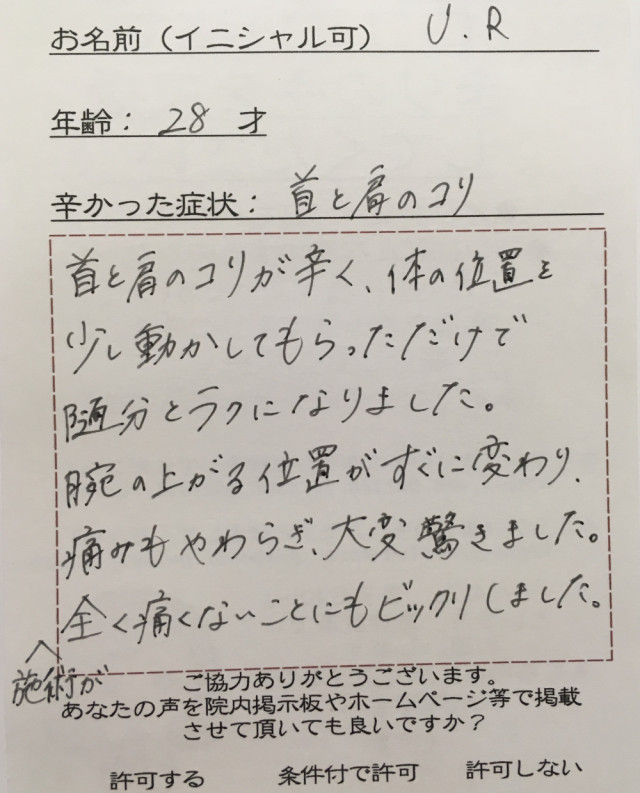 お名前（イニシャル可） U.R
年齢： 28 才
辛かった症状： 首と肩のコリ
首と肩のコリが辛く、体の位置を
少し動かしてもらっただけで
随分とラクになりました。
腕の上がる位置がすぐに変わり、
痛みもやわらぎ、大変驚きました。
全く痛くないことにもビックリしました。
施術が
ご協力ありがとうございます。
あなたの声を院内掲示板やホームページ等で掲載
させて頂いても良いですか？
許可する 条件付で許可 許可しない